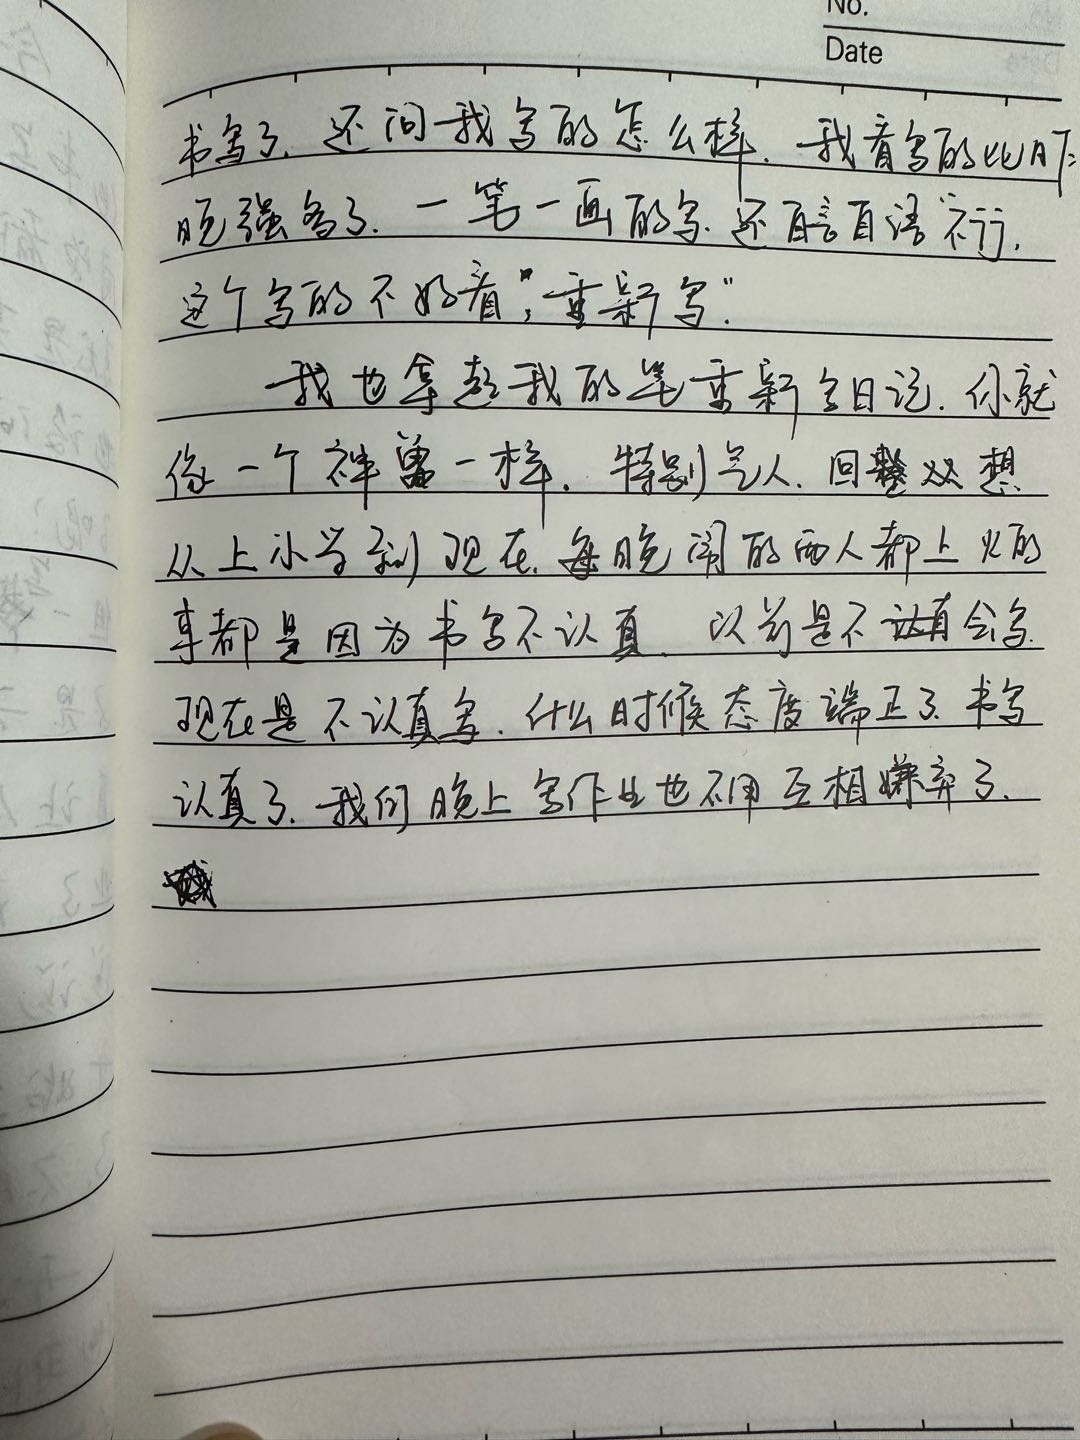 No.
Date
书写了.还问我写的怎么样.我看写的比昨
晚强多了.一笔一画的写.还自言自语"不行.
这个写的不好看",重新写"
我也拿起我的笔重新写日记.你就
像一个神兽一样.特别气人.回想
从上小学到现在.每晚闹的两人都上火的
事都是因为书写不认真.以前是不会写.
现在是不认真写.什么时候态度端正了.书写
认真了.我们晚上写作业也不用互相嫌弃了.